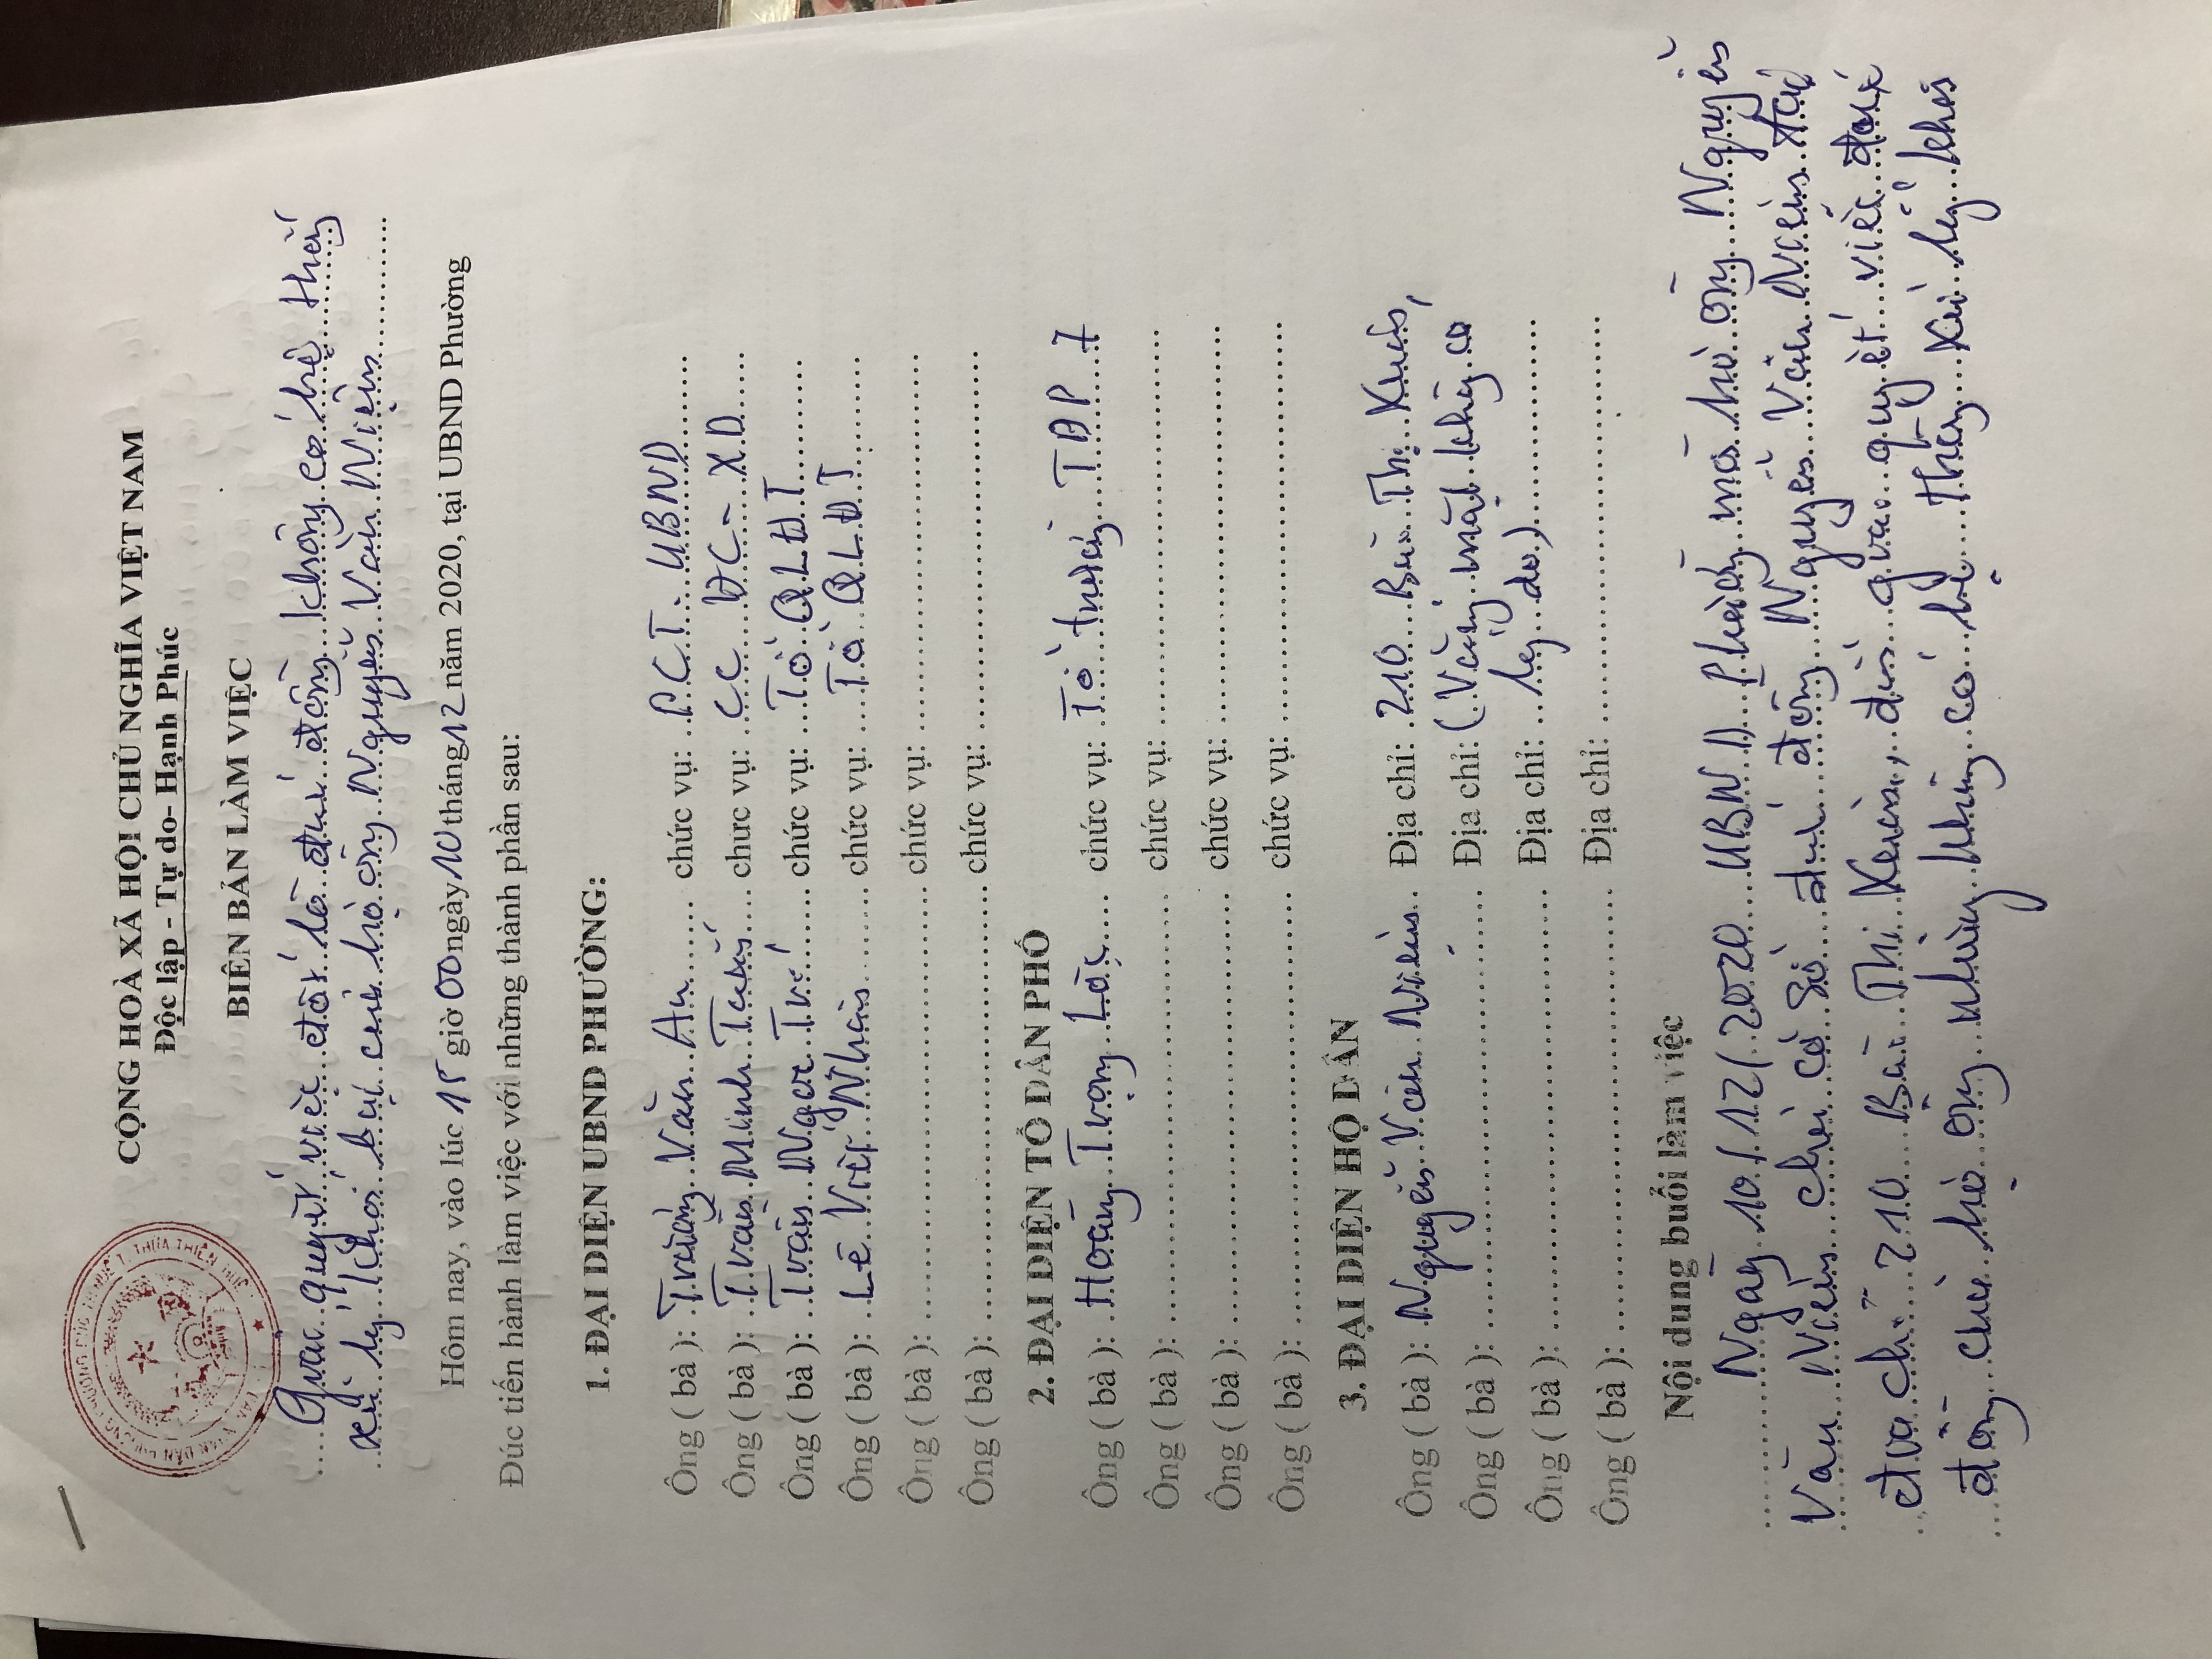 CỘNG HOÀ XÃ HỘI CHỦ NGHĨA VIỆT NAM
Độc lập - Tự do- Hạnh Phúc
BIÊN BẢN LÀM VIỆC
....Giải quyết việc đốt lò đúc đồng không có hệ thống
xử lý khói bụi của hộ ông Nguyễn Văn Niệm
Hôm nay, vào lúc 15 giờ 00 ngày 10 tháng 12 năm 2020, tại UBND Phường
Đúc tiến hành làm việc với những thành phần sau:
1. ĐẠI DIỆN UBND PHƯỜNG:
Ông ( bà ): Trương Văn An chức vụ: P.C.T. UBND
Ông ( bà ): Trần Minh Tuấn chức vụ: CC ĐC - XD
Ông ( bà ): Trần Ngọc Trí chức vụ: Tổ QLĐT
Ông ( bà ): Lê Viết Nhân chức vụ: Tổ QLĐT
Ông ( bà ): chức vụ:
Ông ( bà ): chức vụ:
2. ĐẠI DIỆN TỔ DÂN PHỐ
Ông ( bà ): Hoàng Trọng Lộc chức vụ: Tổ trưởng TDP 7
Ông ( bà ): chức vụ:
Ông ( bà ): chức vụ:
Ông ( bà ): chức vụ:
3. ĐẠI DIỆN HỘ DÂN
Ông ( bà ): Nguyễn Văn Niệm Địa chỉ: 210 Bùi Thị Xuân,
Ông ( bà ): Địa chỉ: (Vắng mặt không có
Ông ( bà ): Địa chỉ: lý do)
Ông ( bà ): Địa chỉ:
Nội dung buổi làm việc
Ngày 10/12/2020 UBND Phường mời hộ ông Nguyễn
Văn Niệm chủ cơ sở đúc đồng Nguyễn Văn Niệm tại
địa chỉ 210 Bùi Thị Xuân, giải quyết việc đúc
đồng của hộ ông nhưng không có hệ thống xử lý khói